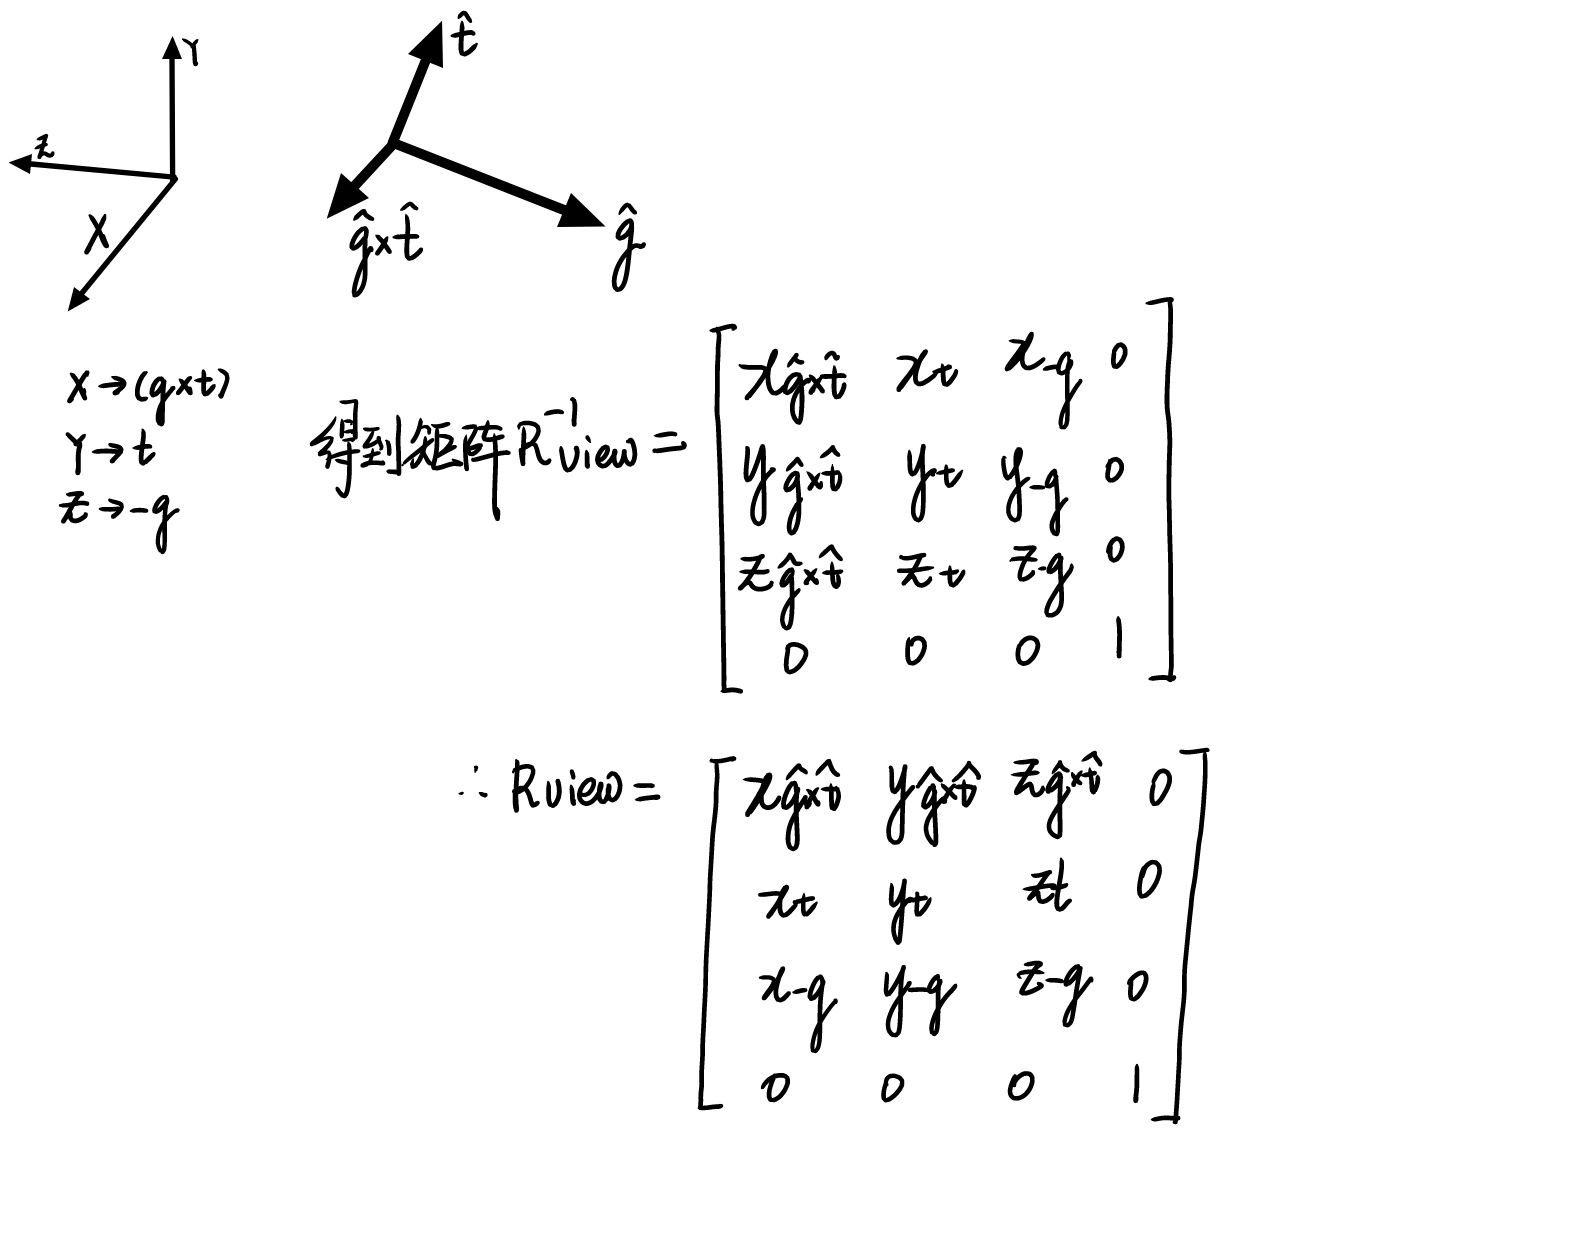 Y
Z
X
t̂
ĝ×t̂
ĝ
X→(g×t)
Y→t
Z→-g
得到矩阵R⁻¹view=
x ĝ×t̂ x t x -g 0
y ĝ×t̂ y t y -g 0
z ĝ×t̂ z t z -g 0
0 0 0 1
∴ Rview=
x ĝ×t̂ y ĝ×t̂ z ĝ×t̂ 0
x t y t z t 0
x -g y -g z -g 0
0 0 0 1